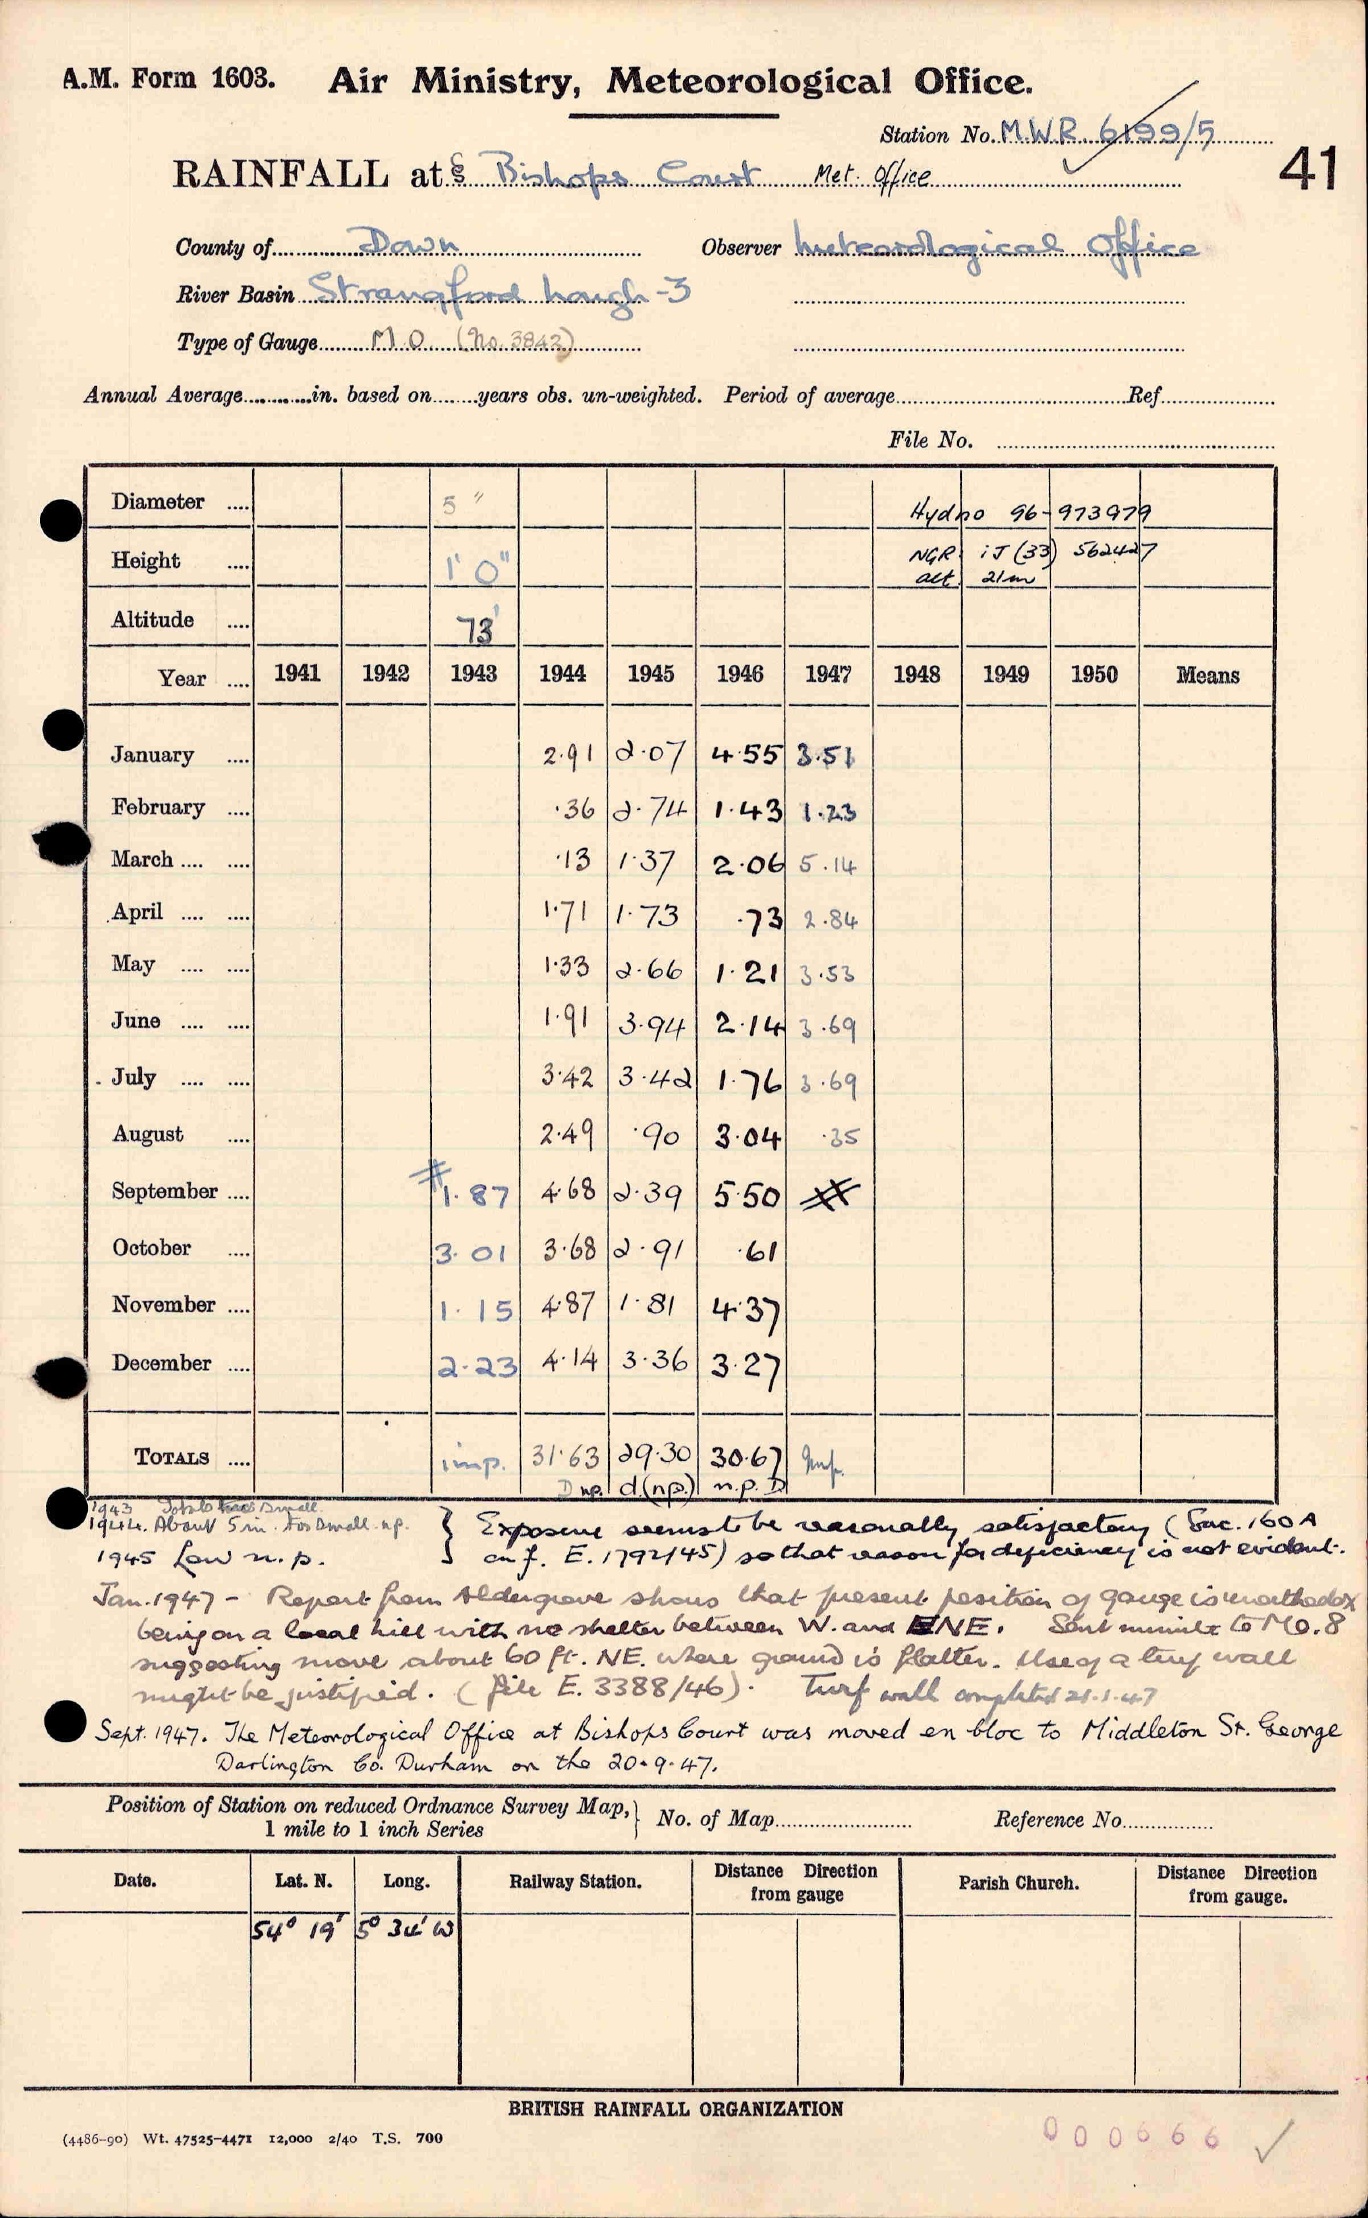 A.M. Form 1603. Air Ministry, Meteorological Office.
Station No. M.W.R. 6199/5
41
RAINFALL at § Bishops Court Met. Office
County of Down Observer Meteorological Office
River Basin Strangford Lough -3
Type of Gauge M.O (No. 3842)
Annual Average..........in. based on.......years obs. un-weighted. Period of average.......... Ref..........
File No. ..........
Diameter .... 5" Hydno 96-973979
Height .... 1' 0" NGR iJ (33) 562427
alt. 21m
Altitude .... 73'
Year .... 1941 1942 1943 1944 1945 1946 1947 1948 1949 1950 Means
January .... 2.91 2.07 4.55 3.51
February .... .36 2.74 1.43 1.23
March .... .... .13 1.37 2.06 5.14
April .... .... 1.71 1.73 .73 2.84
May .... .... 1.33 2.66 1.21 3.53
June .... .... 1.91 3.94 2.14 3.69
July .... .... 3.42 3.42 1.76 3.69
August .... 2.49 .90 3.04 .35
September .... # 1.87 4.68 2.39 5.50 #
October .... 3.01 3.68 2.91 .61
November .... 1.15 4.87 1.81 4.37
December .... 2.23 4.14 3.36 3.27
TOTALS .... imp. 31.63 29.30 30.67 Imp.
D np. d.(np.) n.p. D
1943 Total small.
1944. About 5 in. too small. n.p. } Exposure seems to be reasonably satisfactory (Enc. 160A
1945 Low n.p. } on f. E. 1792/45) so that reason for deficiency is not evident.
Jan. 1947 - Report from Aldergrove shows that present position of gauge is unorthodox
being on a local hill with no shelter between W. and ENE. Sent minute to MO.8
suggesting move about 60 ft. NE. where ground is flatter. Use of a turf wall
might be justified. (file E. 3388/46). Turf wall completed 21.1.47
Sept. 1947. The Meteorological Office at Bishops Court was moved en bloc to Middleton St. George
Darlington Co. Durham on the 20.9.47.
Position of Station on reduced Ordnance Survey Map, } No. of Map.......... Reference No..........
1 mile to 1 inch Series
Date. Lat. N. Long. Railway Station. Distance Direction from gauge Parish Church. Distance Direction from gauge.
54° 19' 5° 34' W
BRITISH RAINFALL ORGANIZATION
(4486-90) Wt. 47525-4471 12,000 2/40 T.S. 700
000666